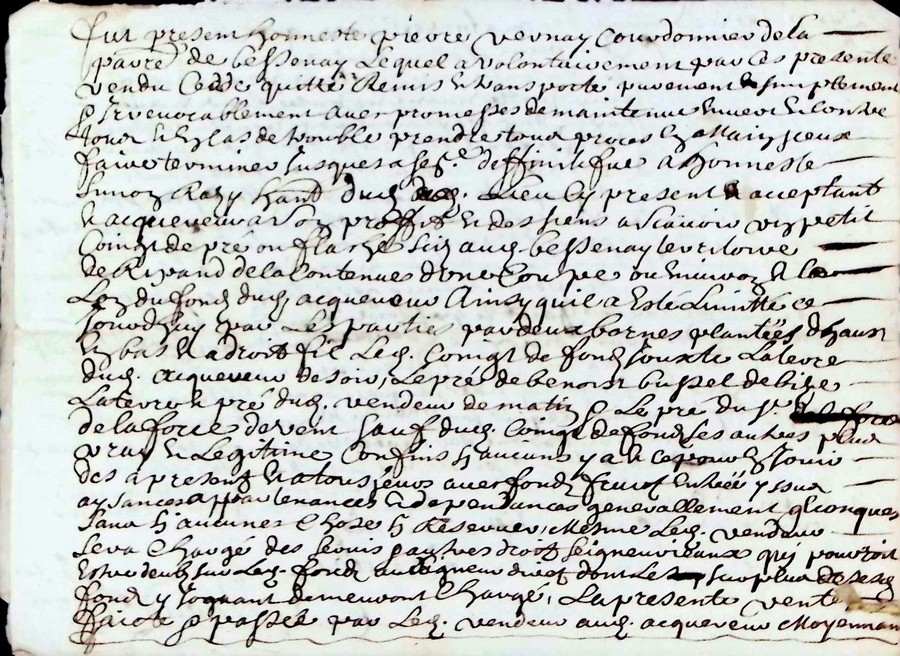 fut present honneste pierre vernay Courdonnier de la
parre de bessenay Lequel a volontairement par ces presente
vendu Cedde quitte Remis & transporte purement & simplement
& Irrevocablement avec promesses de maintenir envers & Contre
tous & En Cas de trouble prendre tous proces En Main Iceux
faire terminer Jusques a Sen.ce deffinitifue a honneste
Simon Razy hant dud. Lieu Cy present & acceptant
& acquereur a Son proffit & des siens a scavoir Un petit
Coingt de pré ou flaché Sciz aud. bessenay territoire
de Ripand de la Contenue d'une Coupe ou Environ & le
Long du fond dud. acquereur Ainsy quil a Esté Limitté ce
Jourdhuy par Les parties par deux bornes plantées d'haut
En bas & a droit fil Led. Coingt de fond Jouxte La terre
dud. acquereur de soir, Le pré de benoist bussel de bize
La terre & pré dud. vendeur de matin & Le pré du Sr.
de la force de vent Sauf dud. Coingt de fond Ses autres plus
vray & Legitime Confins Sy aucuns y a & Ce pour En Jouir
des a present & a tousjours avec fondz fruict Entrée yssue
aysances appartenances & dependances generallement qlconques
Sans Sy aucunes Choses Sy Reserver, Mesme Led. vendeur
Sera Chargé des servis & autres droitz Seigneuriaux qui pourroit
Estre deub sur Led. fond au Seigneur direct dont Le surplus de ses
fond y Joignant demeuront Chargé, La presente vente
faicte & passée par Led. vendeur aud. acquereur Moyennant